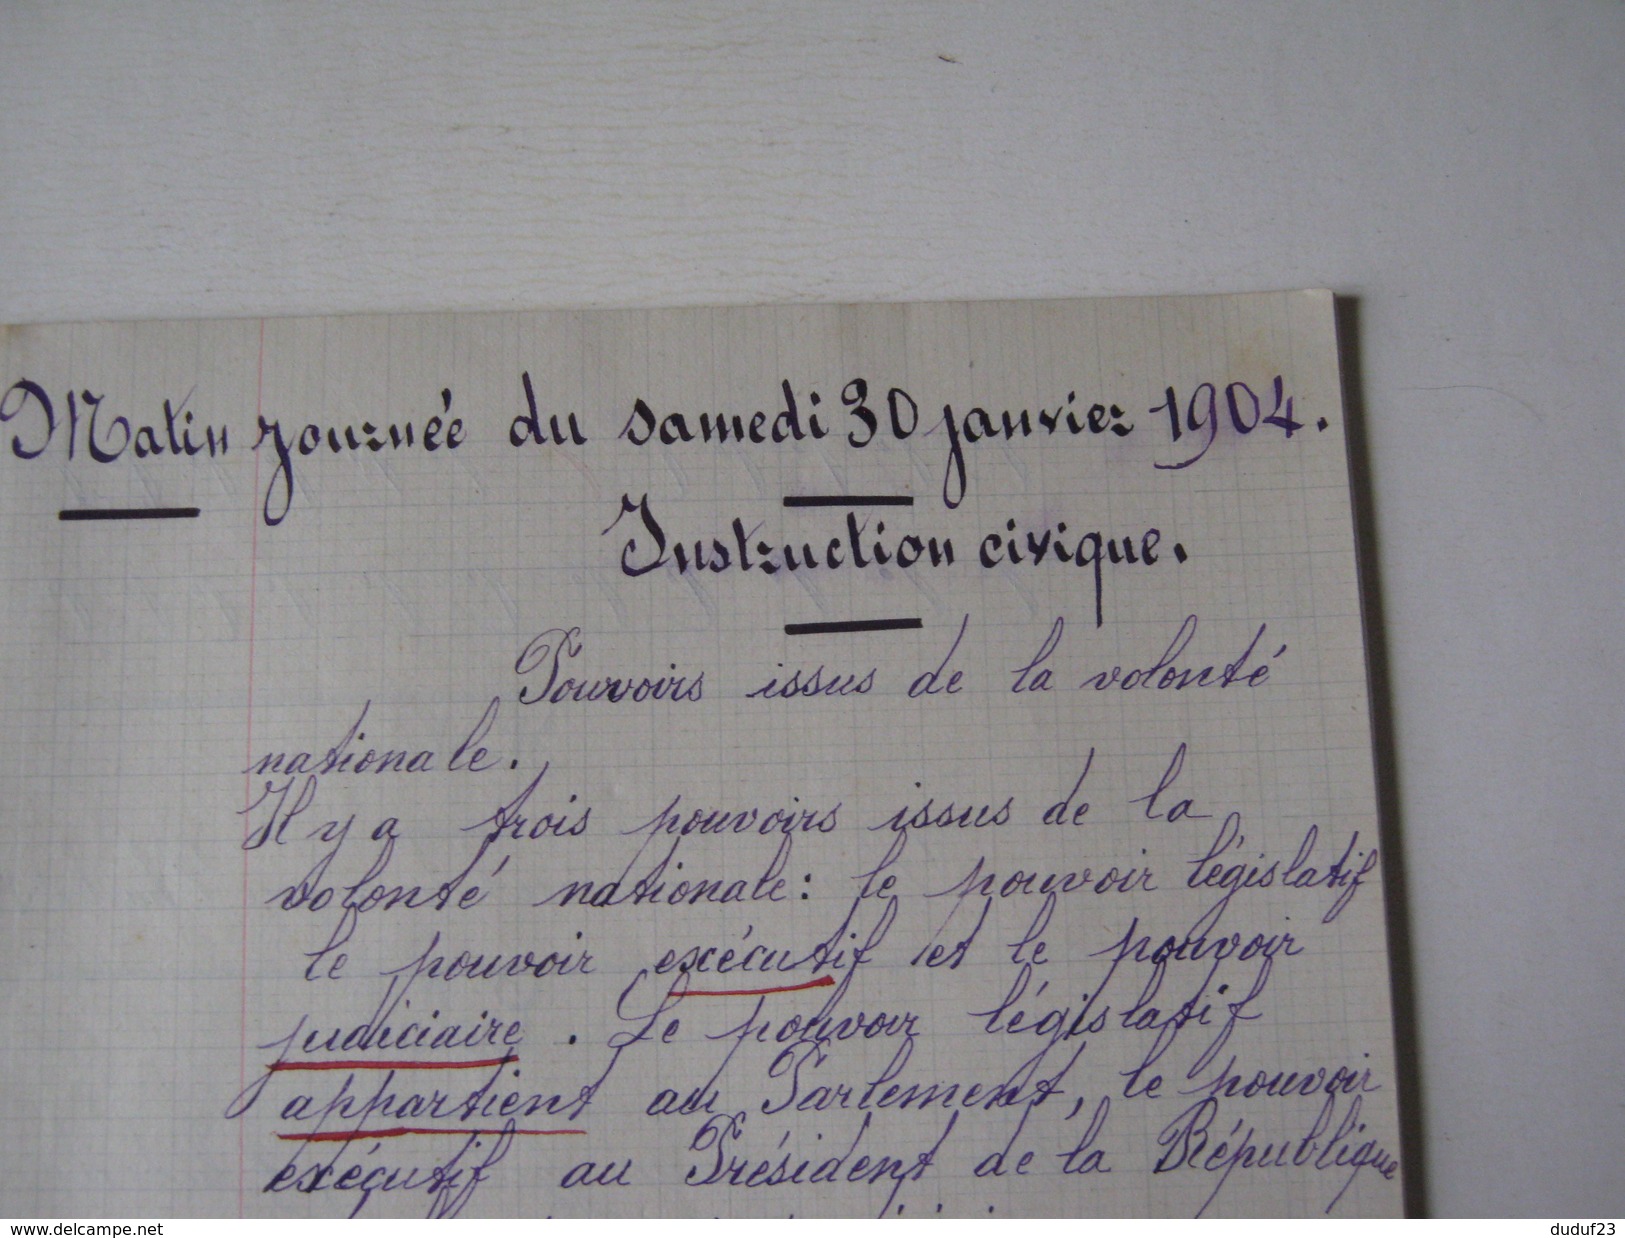 Matin journée du samedi 30 janvier 1904.
Instruction civique.
Pouvoirs issus de la volonté
nationale.
Il y a trois pouvoirs issus de la
volonté nationale: le pouvoir législatif
le pouvoir exécutif et le pouvoir
judiciaire. Le pouvoir législatif
appartient au Parlement, le pouvoir
exécutif au Président de la République
www.delcampe.net
duduf23